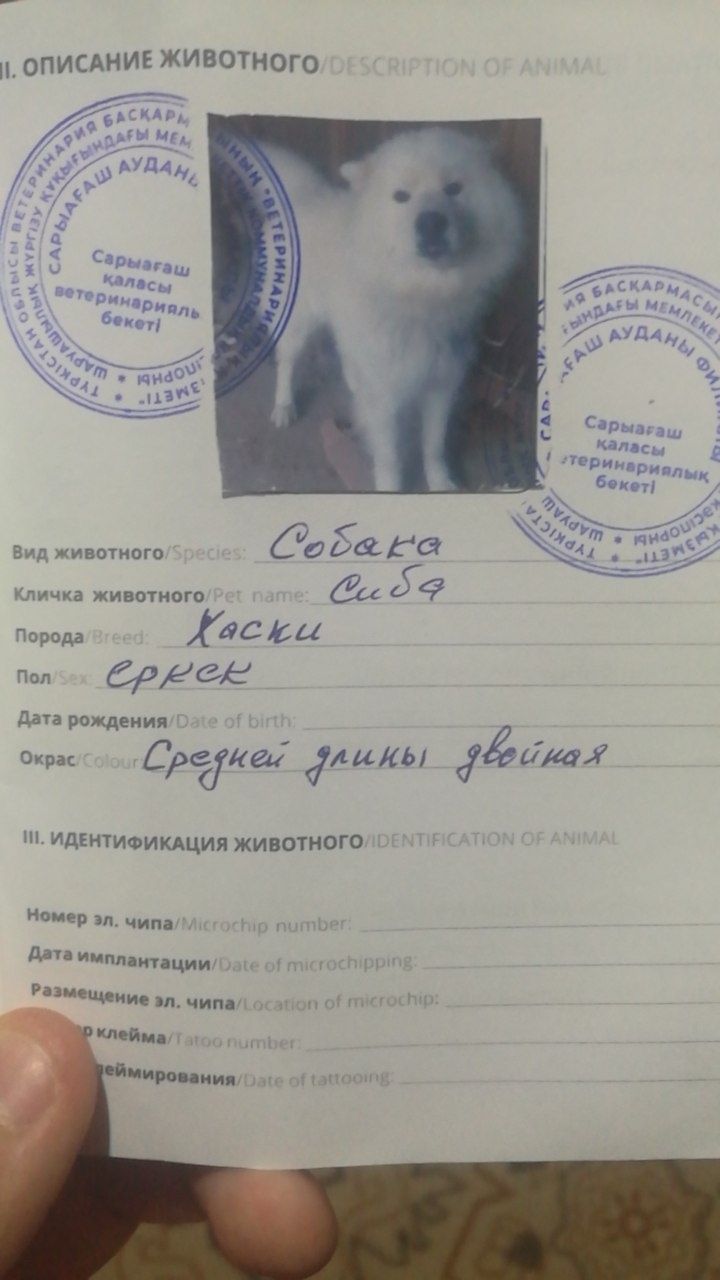 II. ОПИСАНИЕ ЖИВОТНОГО/DESCRIPTION OF ANIMAL
ТҮРКІСТАН ОБЛЫСЫ ВЕТЕРИНАРИЯ БАСҚАРМ
ШАРУАШЫЛЫҚ ЖҮРГІЗУ ҚҰҚЫҒЫНДАҒЫ МЕМ
САРЫАҒАШ АУДАНЫ
Сарыағаш
қаласы
ветеринариялы
бекеті
ИЯ БАСҚАРМАСЫ
ҒЫНДАҒЫ МЕМЛЕКЕТ
АҒАШ АУДАНЫ ФИЛИ
Сарыағаш
қаласы
етеринариялық
бекеті
Вид животного/Species: Собака
Кличка животного/Pet name: Сиба
Порода/Breed: Хаски
Пол/Sex: еркек
Дата рождения/Date of birth:
Окрас/Colour Средней длины двойная
III. ИДЕНТИФИКАЦИЯ ЖИВОТНОГО/IDENTIFICATION OF ANIMAL
Номер эл. чипа/Microchip number:
Дата имплантации/Date of microchipping:
Размещение эл. чипа/Location of microchip:
р клейма/Tatoo number:
леймирования/Date of tattooing: